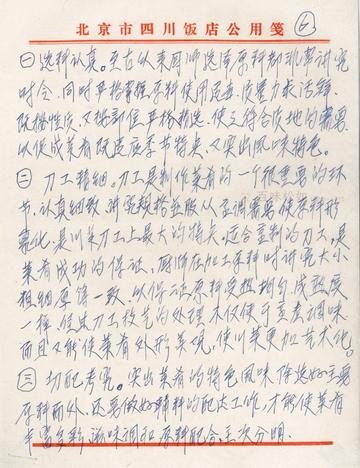 北京市四川饭店公用笺
6
㊀选料认真。历来厨师选择原料都非常讲究
时令，同时严格掌握原料使用范围、质量力求活鲜
既按性质，又按部位，严格挑选，使之符合质地的需要
以使成菜有既适应季节特点，又突出风味特色。
㊁刀工精细。刀工是制作菜肴的一个很重要的环
节，认真细致，讲究规格是服从烹调需要使原料形
是川菜刀工上最大的特点，适合烹制的刀工，是
菜肴成功的保证，厨师在加工原料时讲究大小
粗细厚薄一致，以保证原料受热均匀，成熟度
一样，经过刀工技艺的处理，不仅便于烹煮调味
而且又能使菜肴外形美观，使川菜更加艺术化。
㊂切配考究。突出菜肴的特色风味，除选好主要
原料而外，还要做好辅料的配选工作，才能使菜肴
丰富多彩，滋味调和，原料配合，主次分明。